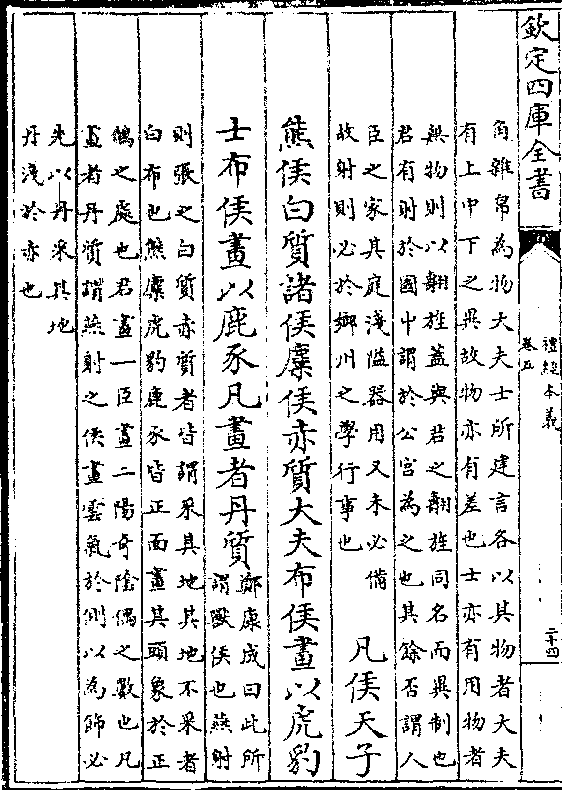 欽定四庫全書
禮經本義
卷五
二十四
角雜帛為物大夫士所建言各以其物者大夫
有上中下之異故物亦有差也士亦有用物者
無物則以翿旌蓋與君之翿旌同名而異制也
君有射於國中謂於公宮為之也其餘否謂人
臣之家其庭淺隘器用又未必備
故射則必於鄉州之學行事也
凡侯天子
熊侯白質諸侯麋侯赤質大夫布侯畫以虎豹
士布侯畫以鹿豕凡畫者丹質
鄭康成曰此所
謂獸侯也燕射
則張之白質赤質者皆謂采其地其地不采者
白布也熊麋虎豹鹿豕皆正面畫其頭象於正
鵠之處也君畫一臣畫二陽奇陰偶之數也凡
畫者丹質謂燕射之侯畫雲氣於側以為飾必
先以丹采其地
丹淺於赤也